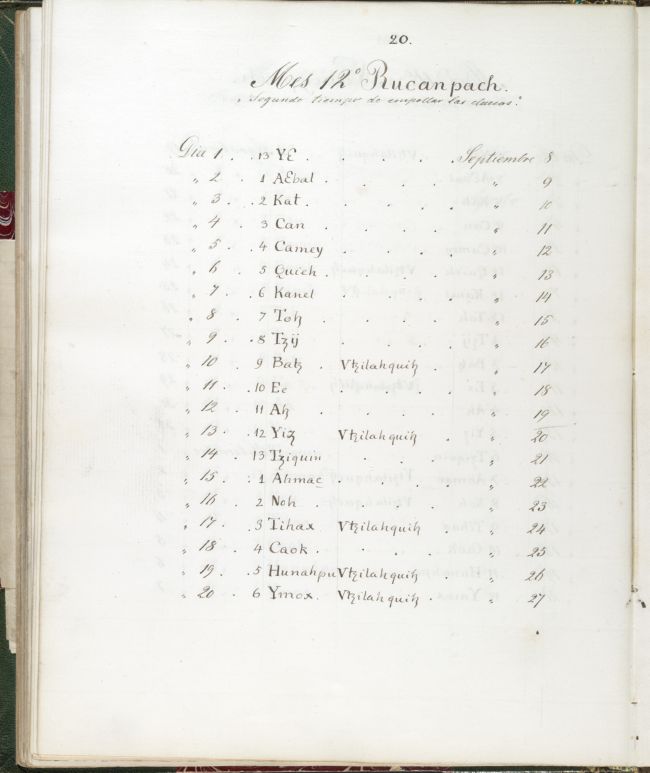 20.
Mes 12º Rucanpach.
Segundo tiempo de empollar las cluecas.
Dia 1 . . 13 Yɛ . . . . . Septiembre 8
„ 2 . . 1 Aɛbal . . . . . „ 9
„ 3 . . 2 Kat . . . . . „ 10
„ 4 . . 3 Can . . . . . „ 11
„ 5 . . 4 Camey . . . . „ 12
„ 6 . . 5 Quieh . . . . . „ 13
„ 7 . . 6 Kanel . . . . . „ 14
„ 8 . . 7 Toꜩ . . . . . „ 15
„ 9 . . 8 Tzij . . . . . „ 16
„ 10 . 9 Batz . Vtzilahquih . . „ 17
„ 11 . . 10 Ee . . . . . „ 18
„ 12 . . 11 Ah . . . . . „ 19
„ 13 . . 12 Yiz Vtzilahquih . . „ 20
„ 14 . 13 Tziquin . . . „ 21
„ 15 . . 1 Ahmac . . . . „ 22
„ 16 . . 2 Noh . . . . . „ 23
„ 17 . . 3 Tihax Vtzilahquih . „ 24
„ 18 . . 4 Caok . . . . . „ 25
„ 19 . . 5 Hunahpu Vtzilahquih . „ 26
„ 20 . 6 Ymox. Vtzilahquih . „ 27